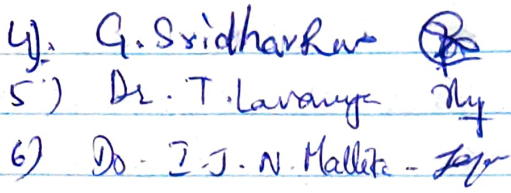 4). G. Sridhar Rao
5) Dr. T. Lavanya
6) Dr. I. J. N. Mallika -